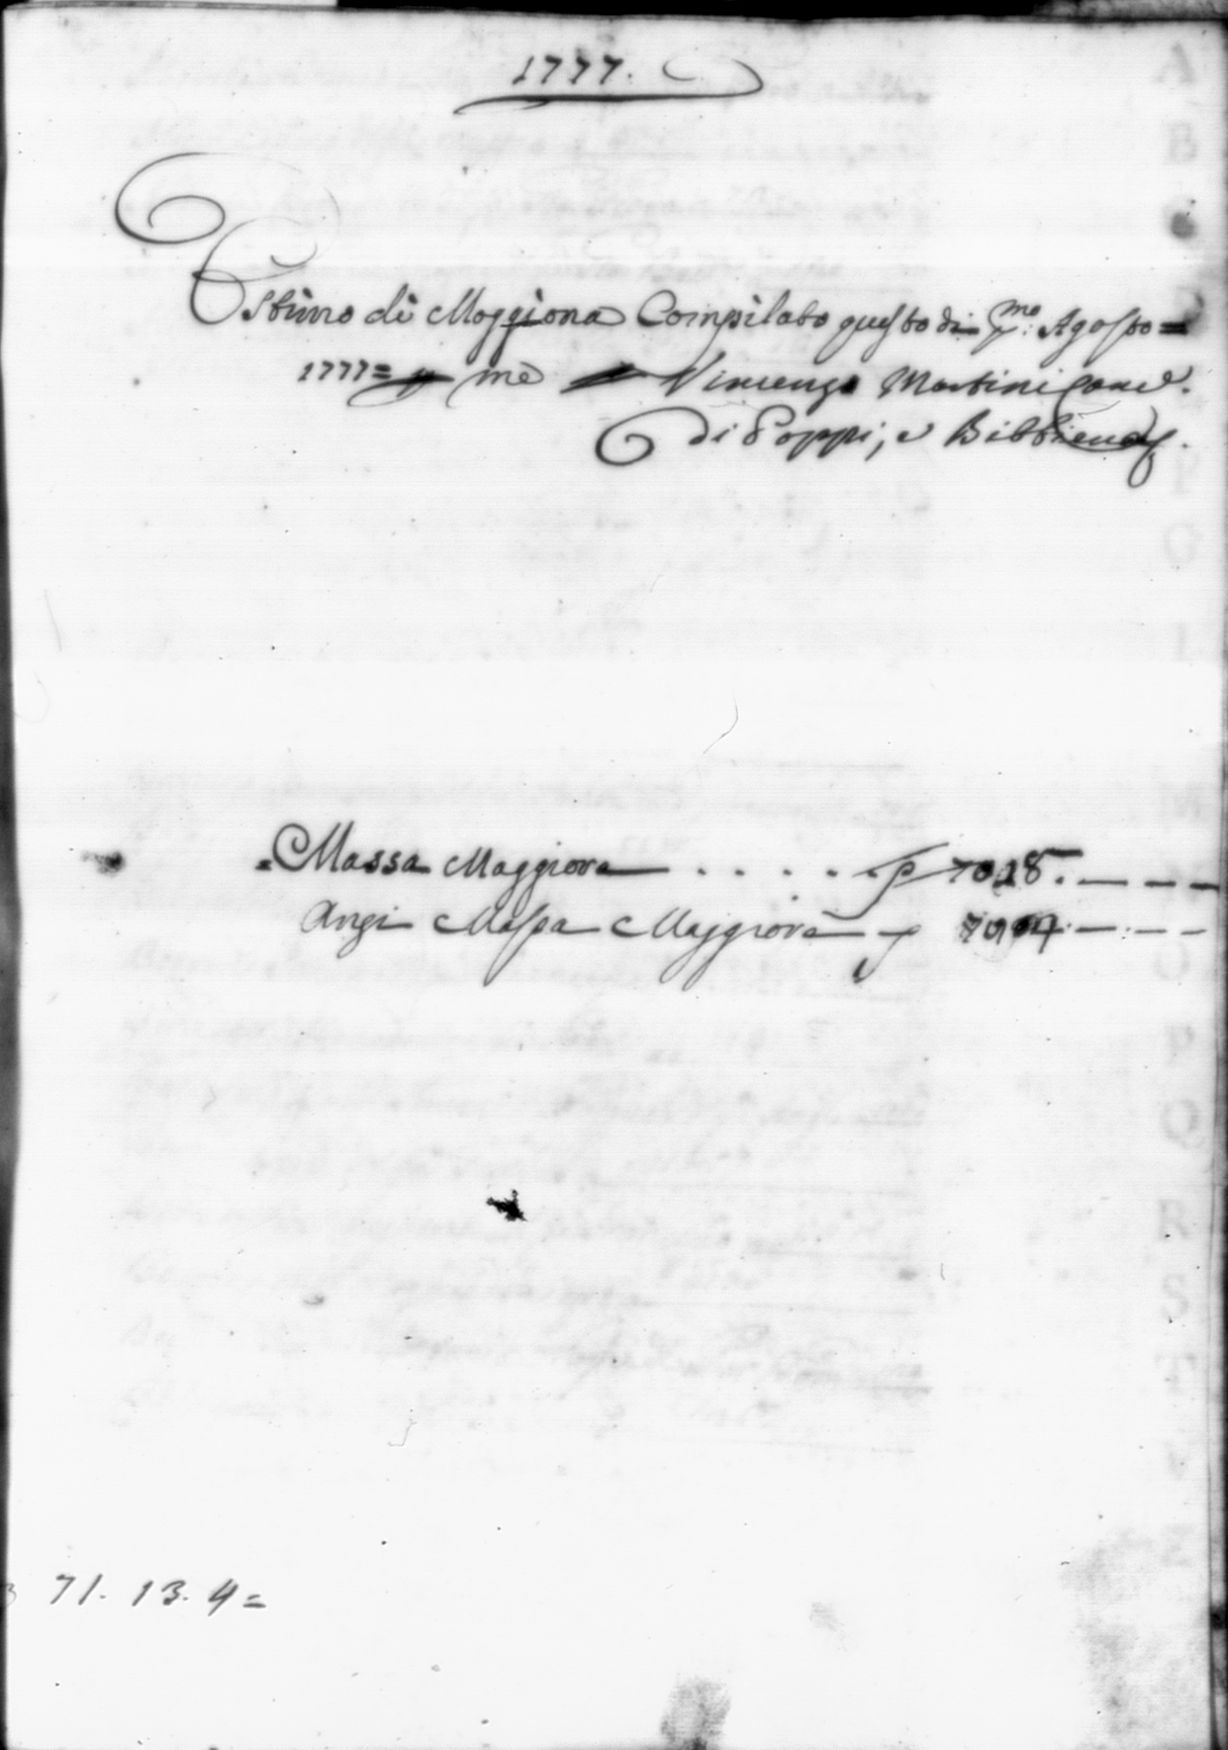 1777.
Estimo di Moggiona Compilato questo di p.mo Agosto =
1777 = p me Vincenzo Martini Canc.e
di Poppi, e Bibbiena
Massa Maggiore - . . . . . p 7028. - - -
Anzi Massa Maggiore - p
71. 13. 4 =